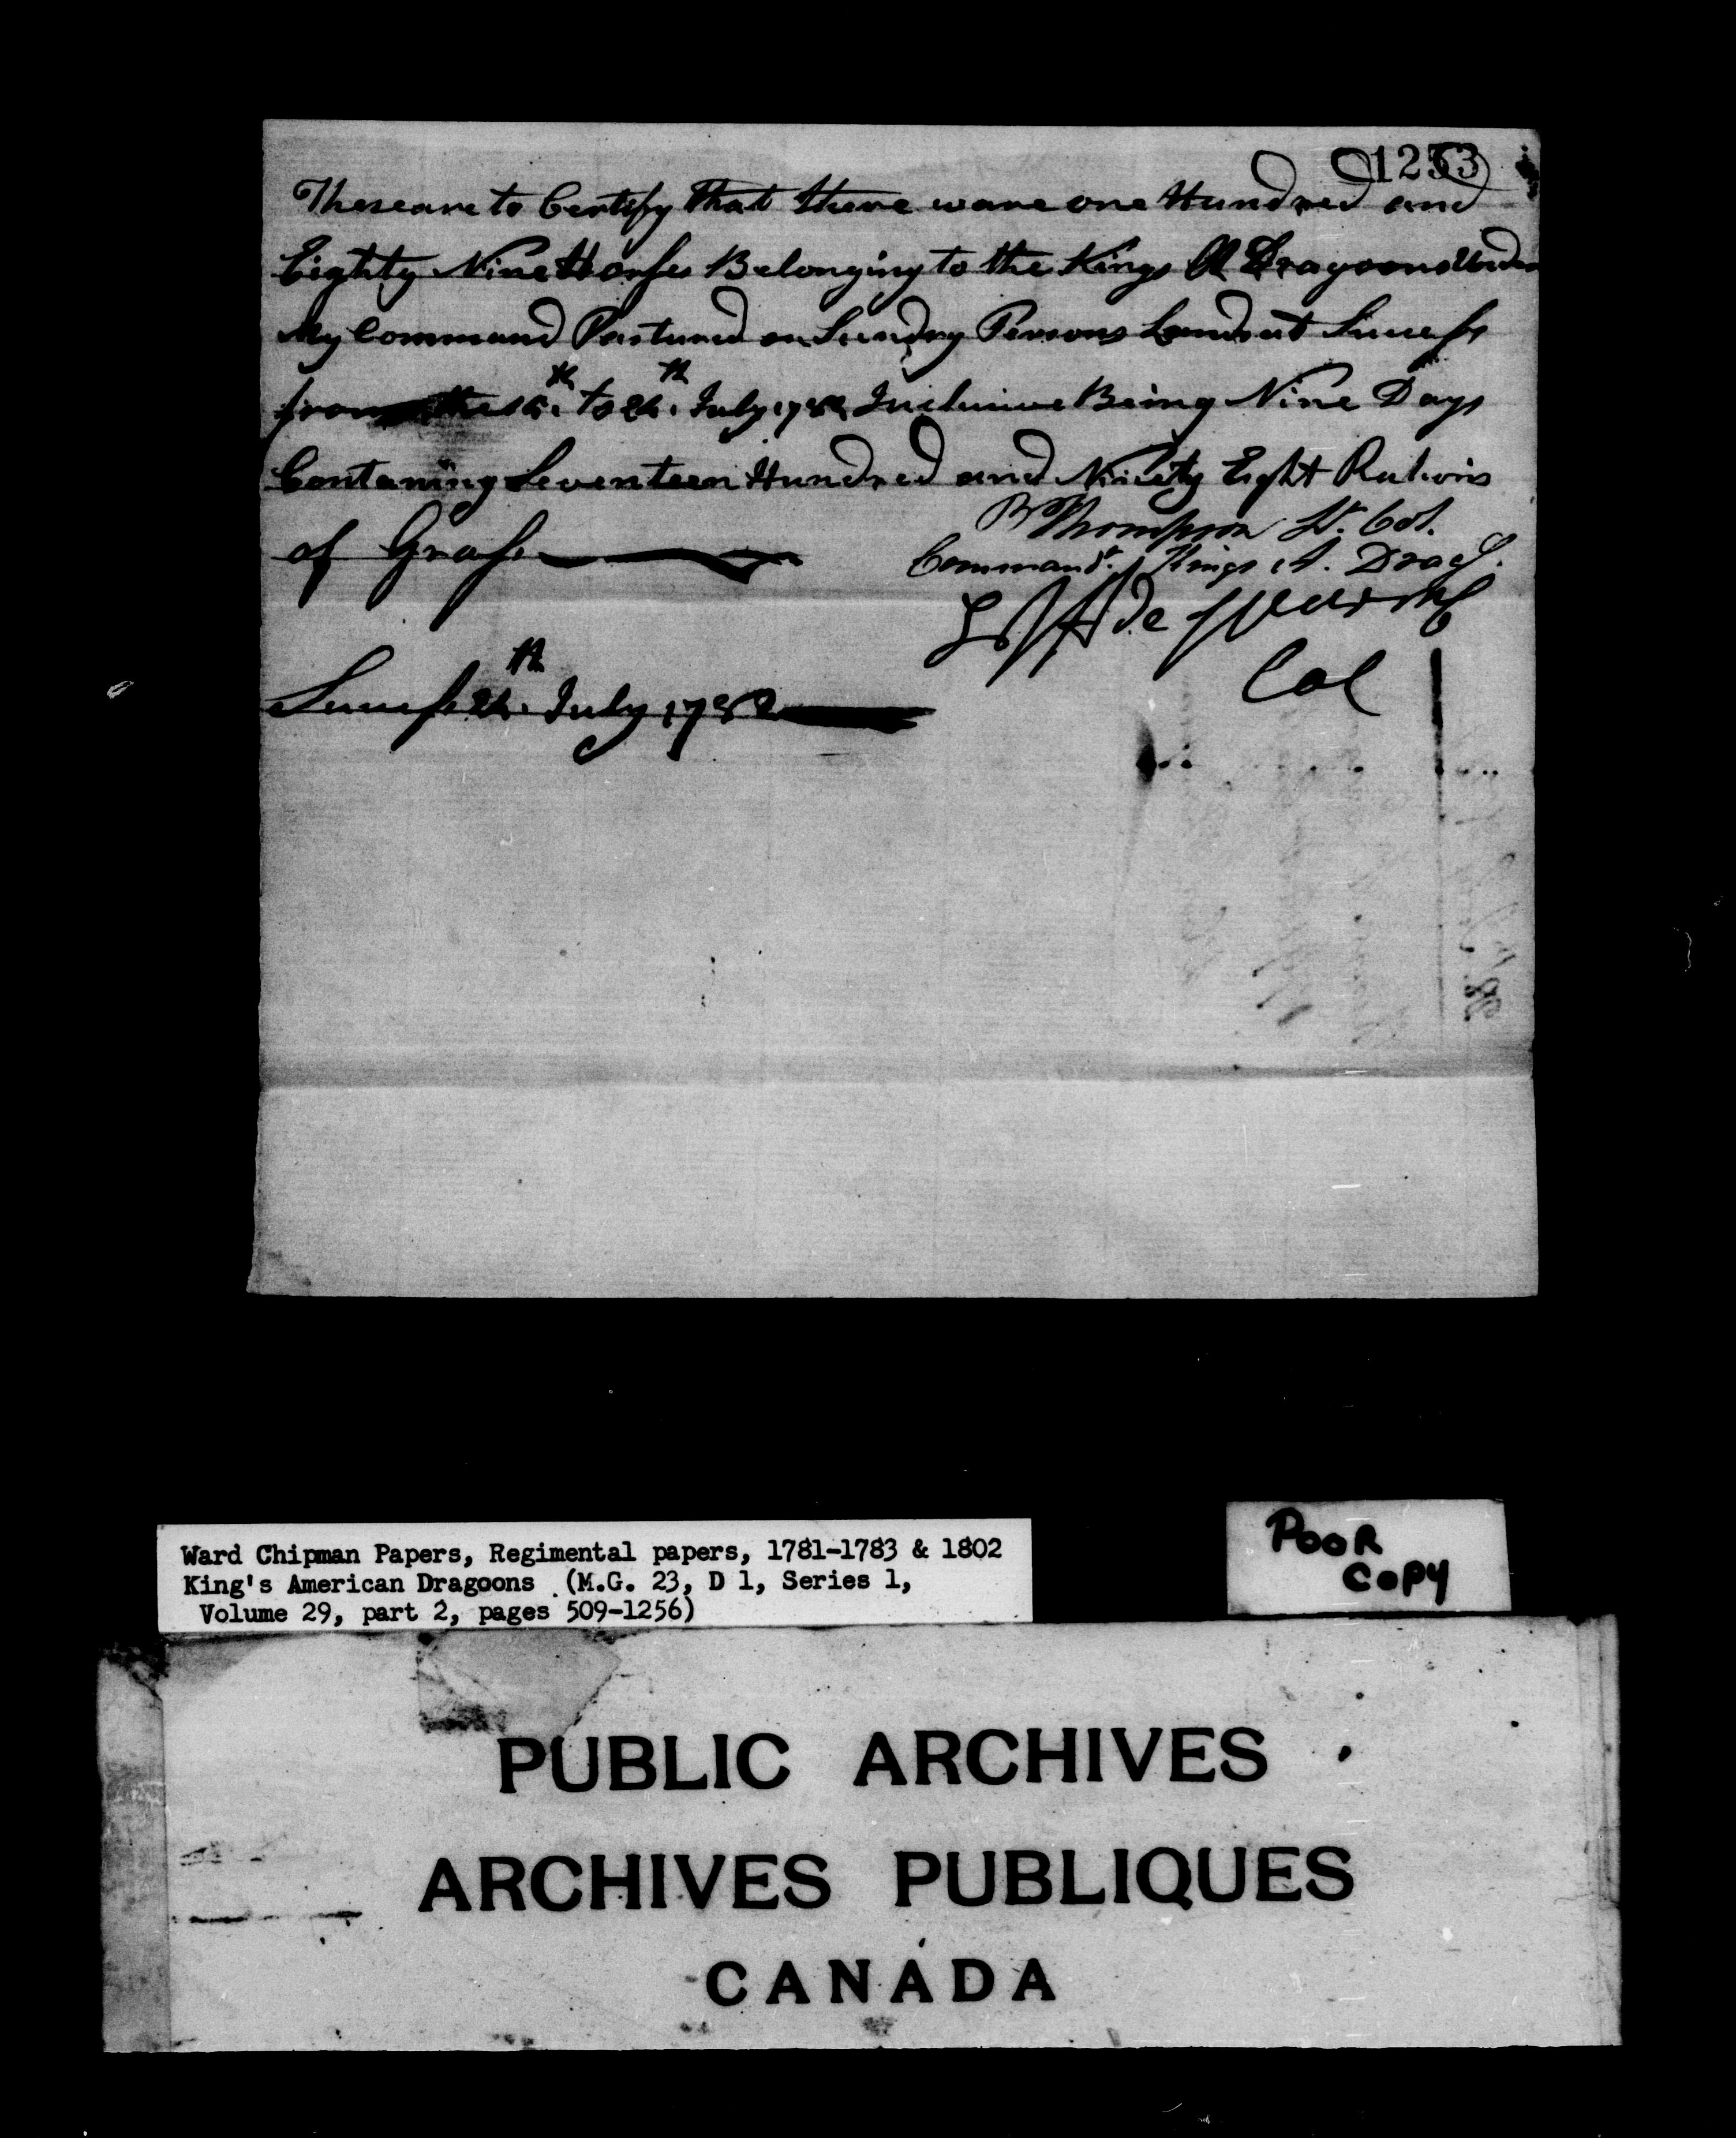 1253
These are to Certify that there ware one Hundred and
Eighty Nine Horses Belonging to the Kings A Dragoons Under
My Command Pastured on Sundry Persons Lands at
from the to July 1782 Inclusive Being Nine Days
Contaning Seventeen Hundred and Ninety Eight Rations
of Grass
B Thompson Lt. Col.
Command.t Kings A. Drag.s
de
Col
July 1782
Ward Chipman Papers, Regimental papers, 1781-1783 & 1802
King's American Dragoons (M.G. 23, D 1, Series 1,
Volume 29, part 2, pages 509-1256)
POOR
COPY
PUBLIC ARCHIVES
ARCHIVES PUBLIQUES
CANADA